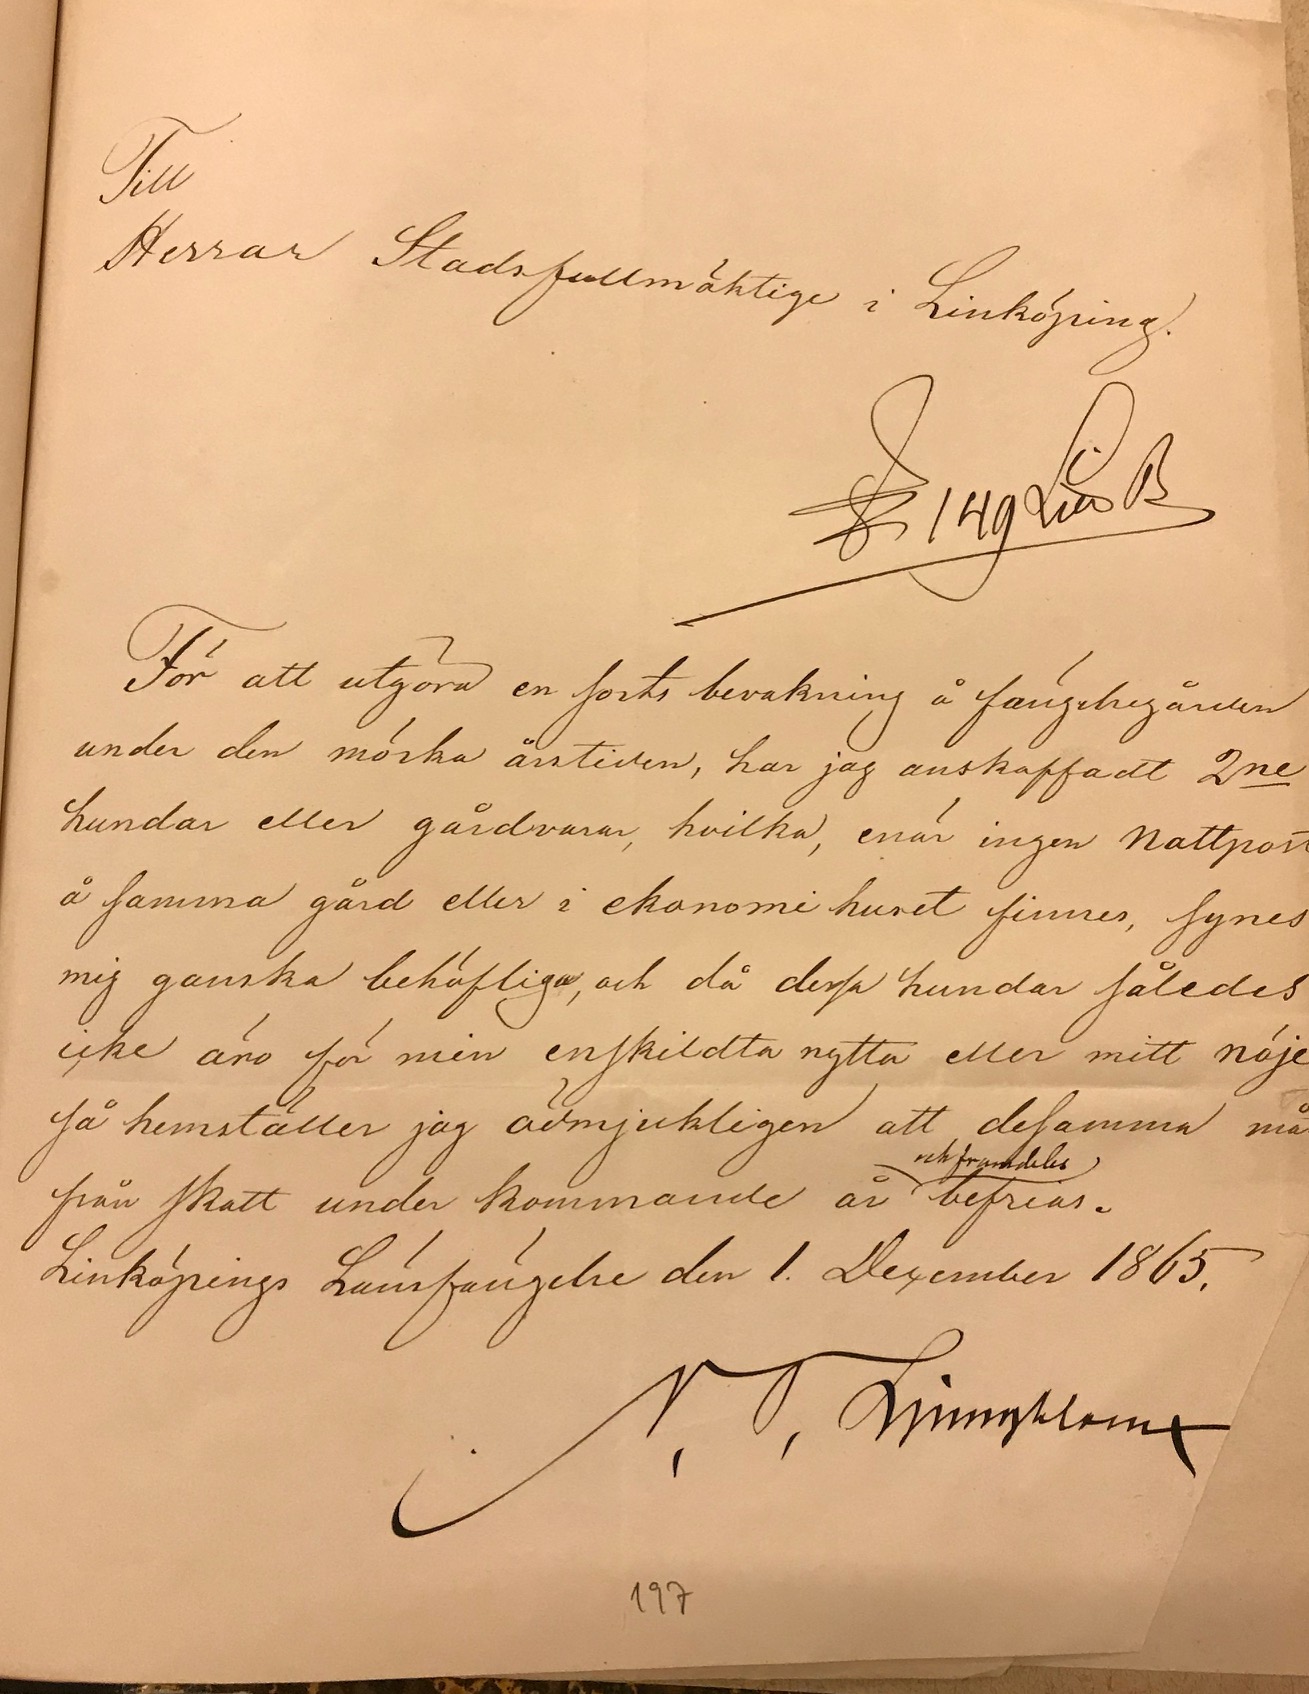 Till
Herrar Stadsfullmäktige i Linköping.
149 Litt B
För att utgöra en sorts bevakning å fängelsegården
under den mörka årstiden, har jag anskaffadt 2ne
hundar eller gårdvarar, hvilka, enär ingen Nattpost
å samma gård eller i ekonomihuset finnes, synes
mig ganska behöfliga, och då dessa hundar således
icke äro för min enskildta nytta eller mitt nöje
så hemställer jag ödmjukligen att desamma må
och framdeles
från skatt under kommande år befrias.
Linköpings Länsfängelse den 1. December 1865.
N. T. Ljungblom
197